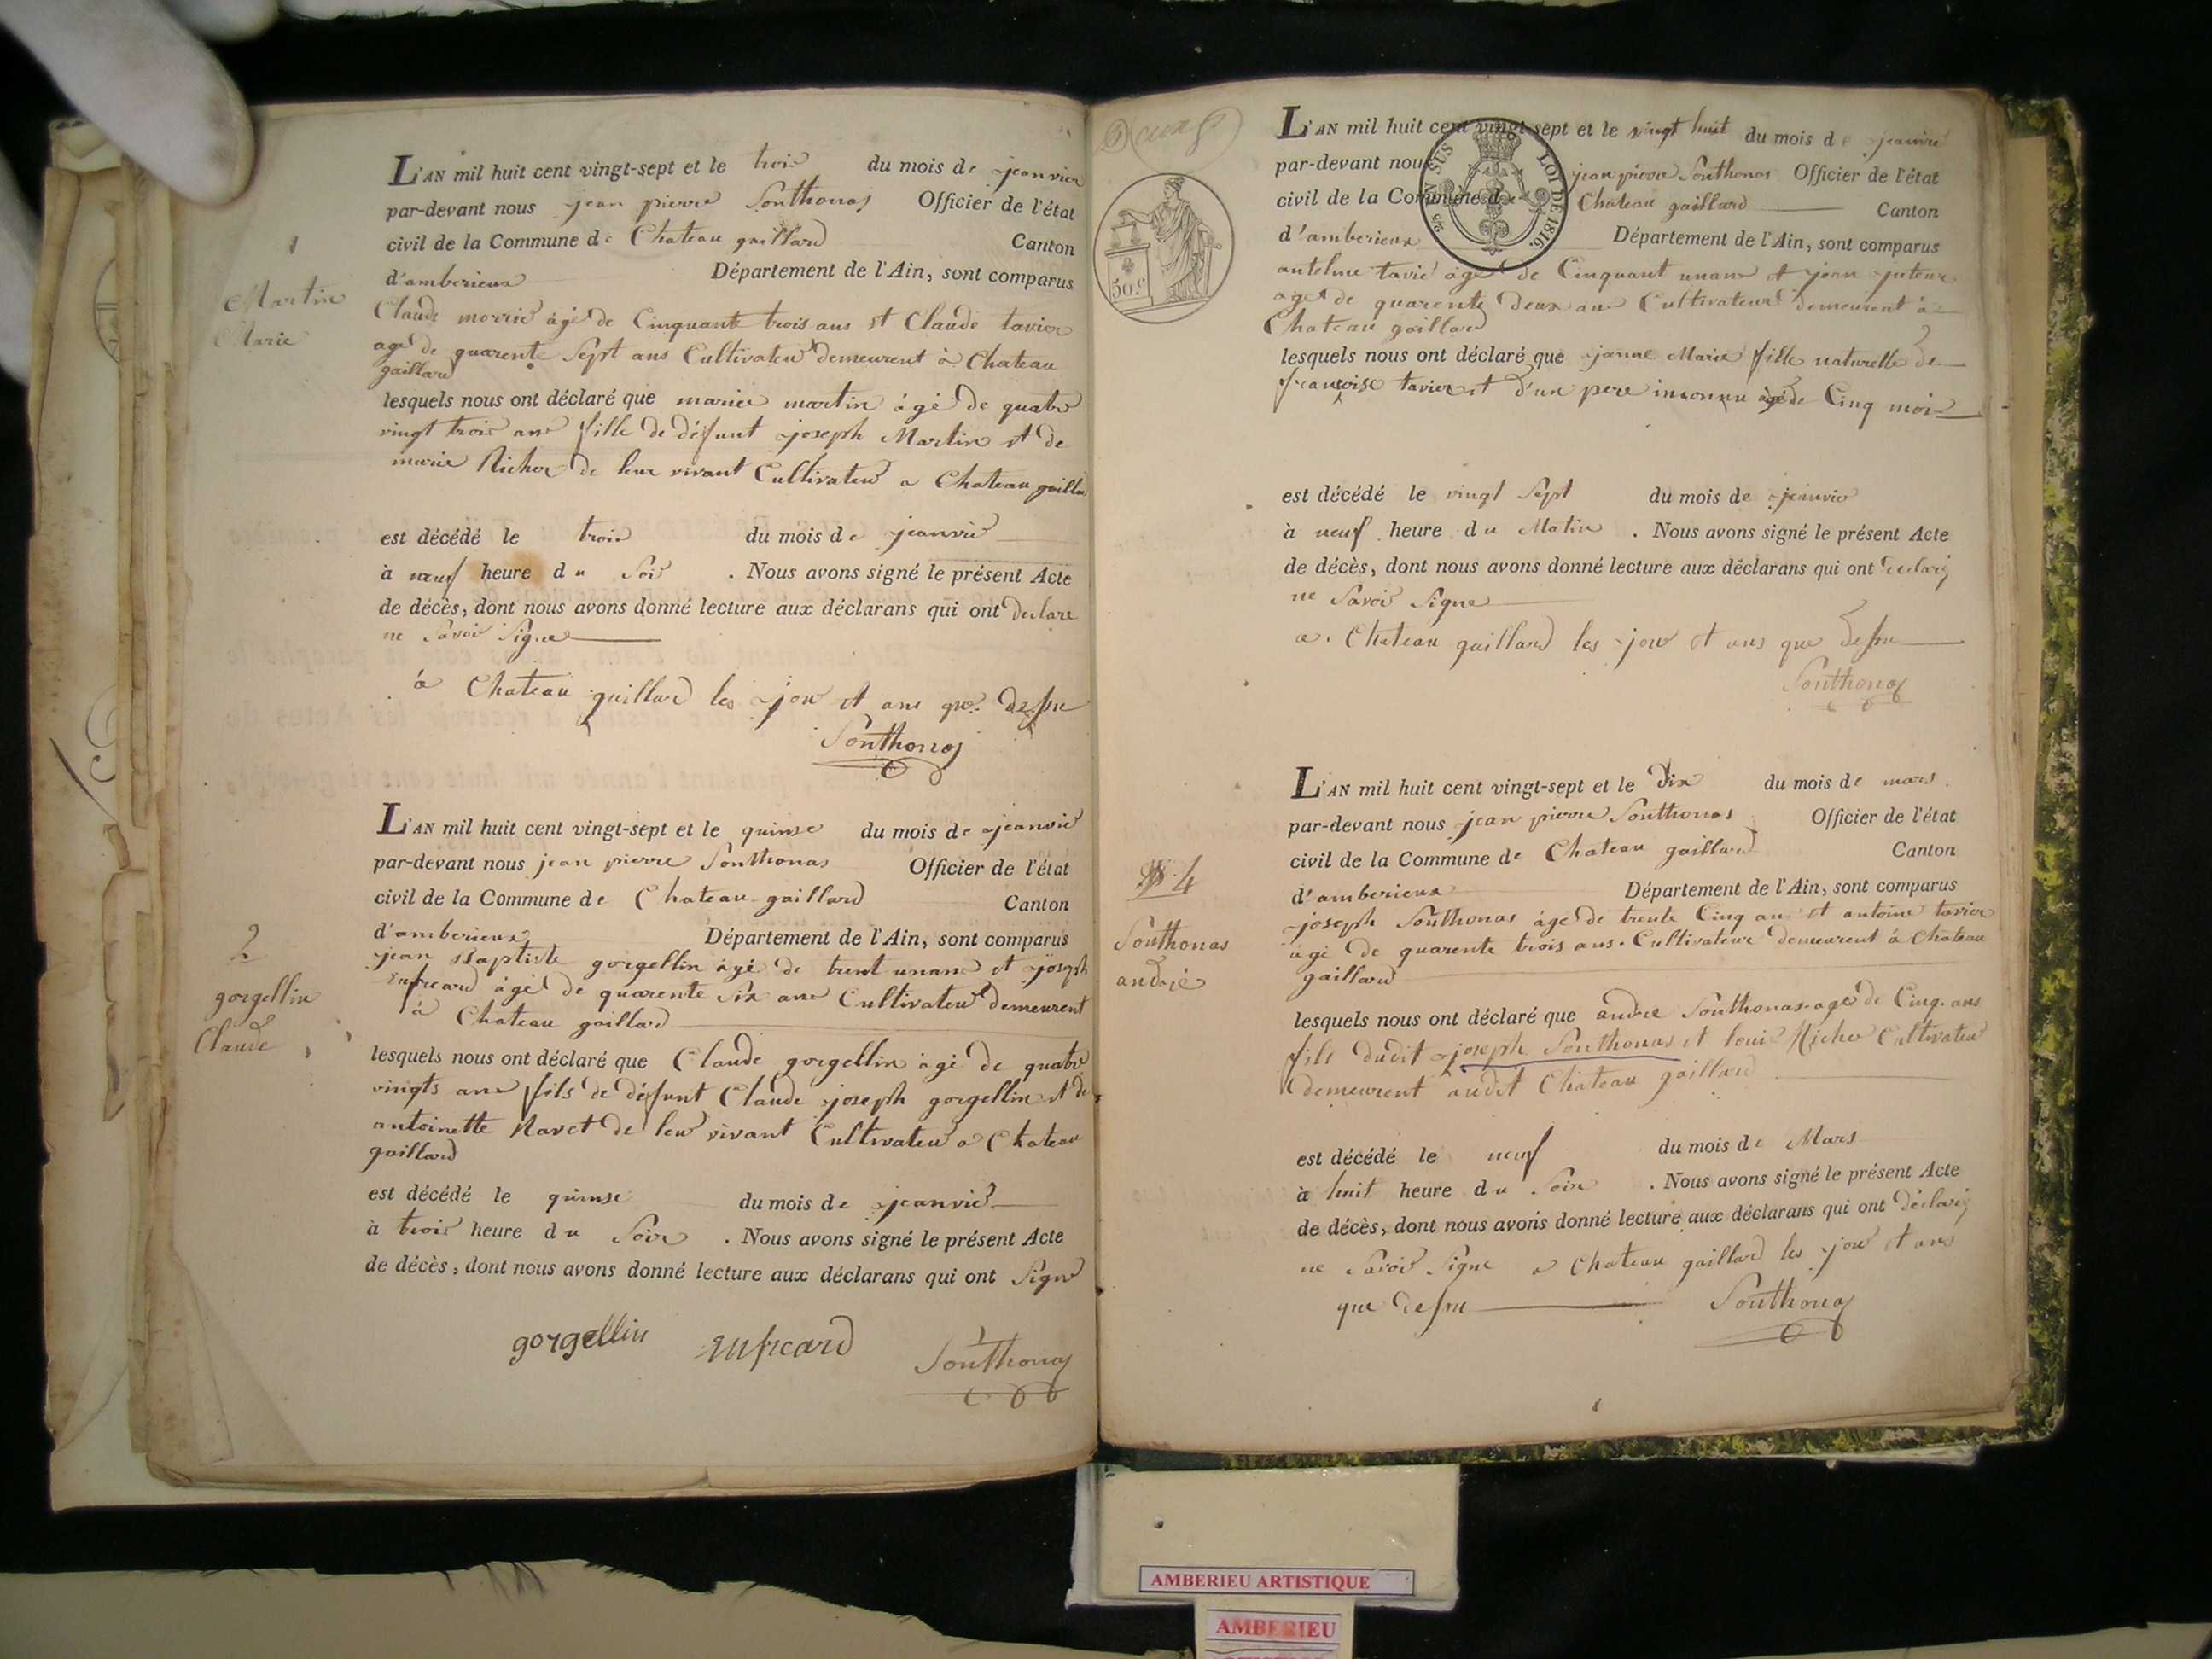 1
Martin
Marie
L'AN mil huit cent vingt-sept et le trois du mois de jeanvier
par-devant nous jean pierre Southonas Officier de l'état
civil de la Commune de Chateau gaillard Canton
d'amberieux Département de l'Ain, sont comparus
Claude morrié àgé de Cinquante trois ans et Claude tavier
agé de quarente Sept ans Cultivateur demeurent à Chateau
gaillard
lesquels nous ont déclaré que mariee martin àgé de quatre
vingt trois ans fille de défunt joseph Martin et de
marie Richer de leur vivant Cultivateur a Chateau gaillar
est décédé le trois du mois de jeanvié
à neuf heure du Soir . Nous avons signé le présent Acte
de décès, dont nous avons donné lecture aux déclarans qui ont declare
ne Savoir Signe
à Chateau gaillard les jour et ans que dessu
Southonas
2
gorgellin
Claude
L'AN mil huit cent vingt-sept et le quinse du mois de jeanvié
par-devant nous jean pierre Southonas Officier de l'état
civil de la Commune de Chateau gaillard Canton
d'amberieux Département de l'Ain, sont comparus
jean Baptiste gorgellin àgé de trent unans et joseph
àgé de quarente Six ans Cultivateur demeurent
à Chateau gaillard
lesquels nous ont déclaré que Claude gorgellin àgé de quatre
vingts ans fils de défunt Claude joseph gorgellin et de
antoinette Ravet de leur vivant Cultivateur a Chateau
gaillard
est décédé le quinse du mois de jeanvié
à trois heure du Soir . Nous avons signé le présent Acte
de décès, dont nous avons donné lecture aux déclarans qui ont Signé
gorgellin Southonas
50 c.
EN SUS LOI DE 1816.
L'AN mil huit cent vingt-sept et le vingt huit du mois de jeanvié
par-devant nous jean pierre Southonas Officier de l'état
civil de la Commune de Chateau gaillard Canton
d'amberieux Département de l'Ain, sont comparus
antelme tavié àgé de Cinquant unans et jean
agé de quarente deux ans Cultivateur demeurent à
Chateau gaillard
lesquels nous ont déclaré que janne Marie fille naturelle de
françoise tavier et d'un pere inconnu àgé de Cinq mois
est décédé le vingt Sept du mois de jeanvié
à neuf heure du Matin . Nous avons signé le présent Acte
de décès, dont nous avons donné lecture aux déclarans qui ont declaré
ne Savoir Signe
a Chateau gaillard les jour et ans que dessu
Southonas
4
Southonas
andrié
L'AN mil huit cent vingt-sept et le dix du mois de mars
par-devant nous jean pierre Southonas Officier de l'état
civil de la Commune de Chateau gaillard Canton
d'amberieux Département de l'Ain, sont comparus
joseph Southonas àgé de trente Cinq ans et antoine tavier
àgé de quarente trois ans Cultivateur demeurent à Chateau
gaillard
lesquels nous ont déclaré que andre Southonas agé de Cinq ans
fils dudit joseph Southonas et louis Richer Cultivateur
demeurent audit Chateau gaillard
est décédé le neuf du mois de Mars
à huit heure du Soir . Nous avons signé le présent Acte
de décès, dont nous avons donné lecture aux déclarans qui ont déclaré
ne Savoir Signe a Chateau gaillard les jour et ans
que dessu Southonas
AMBERIEU ARTISTIQUE
AMBERIEU